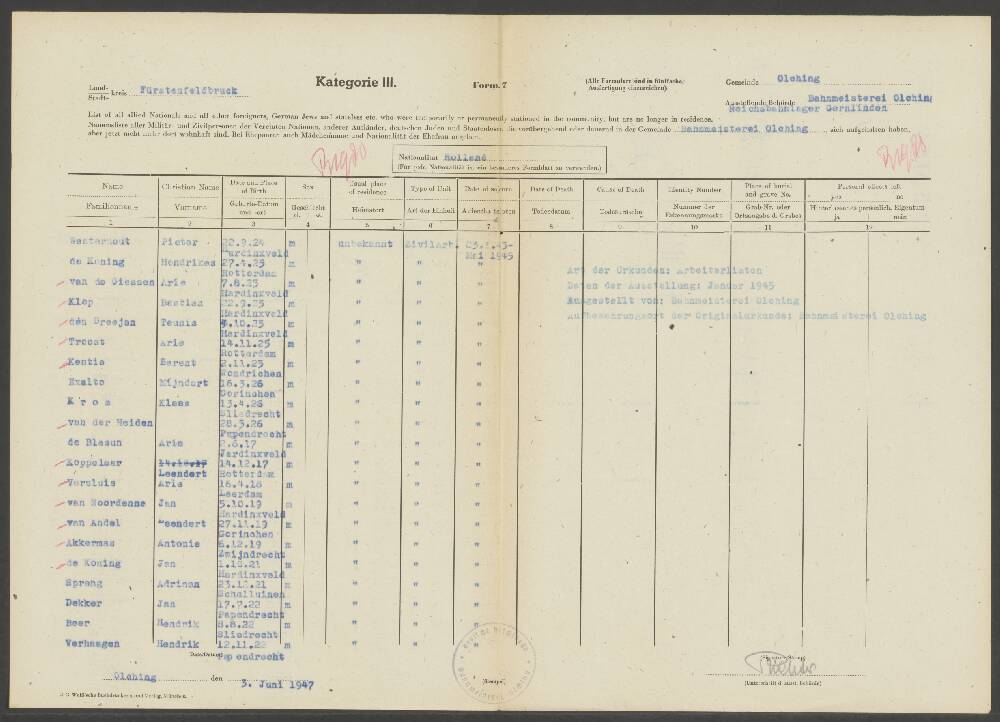 Kategorie III.
Form. 7
(Alle Formulare sind in fünffacher
Ausfertigung einzureichen).
Gemeinde Olching
Land-
Stadt- kreis Fürstenfeldbruck
Ausstellende Behörde Bahnmeisterei Olching
Reichsbahnlager Gernlinden
List of all allied Nationals and all other foreigners, German Jews and stateless etc. who were temporarily or permanently stationed in the community, but are no longer in residence.
Namensliste aller Militär- und Zivilpersonen der Vereinten Nationen, anderer Ausländer, deutschen Juden und Staatenlosen, die vorübergehend oder dauernd in der Gemeinde Bahnmeisterei Olching, sich aufgehalten haben,
aber jetzt nicht mehr dort wohnhaft sind. Bei Ehepaaren auch Mädchenname und Nationalität der Ehefrau angeben.
Nationalität Holland
(Für jede Nationalität ist ein besonderes Formblatt zu verwenden.)
Name Christian Name Date and Place of Birth Sex Usual place of residence Type of Unit Date of seizure Date of Death Cause of Death Identity Number Place of burial and grave No. Personal effects left yes no
Familienname Vorname Geburts-Datum und -ort Geschlecht Heimatort Art der Einheit Todesdatum Todesursache Nummer der Erkennungsmarke Grab-Nr. oder Ortsangabe d. Grabes Hinterlassenes persönlich. Eigentum ja nein
1 2 3 4 5 6 7 8 9 10 11 12
Westerhout Pieter 22.9.24 m unbekannt Zivilarb.
Hardinxveld Mai 1945
de Koning Hendrikes 27.4.25 m " " "
Rotterdam
van de Giessen Arie 7.8.25 m " " "
Hardinxveld
Klop Bastian 22.9.25 m " " "
Hardinxveld
den Dreejen Teunis 4.10.25 m " " "
Hardinxveld
Troost Arie 14.11.25 m " " "
Rotterdam
Kentie Berent 2.11.25 m " " "
Woudrichen
Exalto Mijndert 16.3.26 m " " "
Gorinchen
Krom Klaas 13.4.26 m " " "
Sliedrecht
van der Heiden 28.3.26 m " " "
Papendrecht
de Blasun Arie 2.6.17 m " " "
Jardinxveld
Koppelaar Leendert 14.12.17 m " " "
Rotterdam
Versluis Arie 16.4.18 m " " "
Leerdam
van Noordenne Jan 5.10.19 m " " "
Hardinxveld
van Andel Leendert 27.11.19 m " " "
Gorinchen
Akkermas Antonie 6.12.19 m " " "
Zwijndrecht
de Koning Jan 1.10.21 m " " "
Hardinxveld
Spreng Adrinan 23.12.21 m " " "
Schelluinen
Dekker Jan 17.7.22 m " " "
Papendrecht
Boer Hendrik 8.8.22 m " " "
Sliedrecht
Verhaagen Hendrik 12.11.22 m " " "
Papendrecht
Art der Urkunden: Arbeiterlisten
Daten der Ausstellung: Januar 1945
Ausgestellt von: Bahnmeisterei Olching
Aufbewahrungsort der Originalurkunde: Bahnmeisterei Olching
Olching den 3. Juni 1947
(Stempel)
(Unterschrift d. ausst. Behörde)